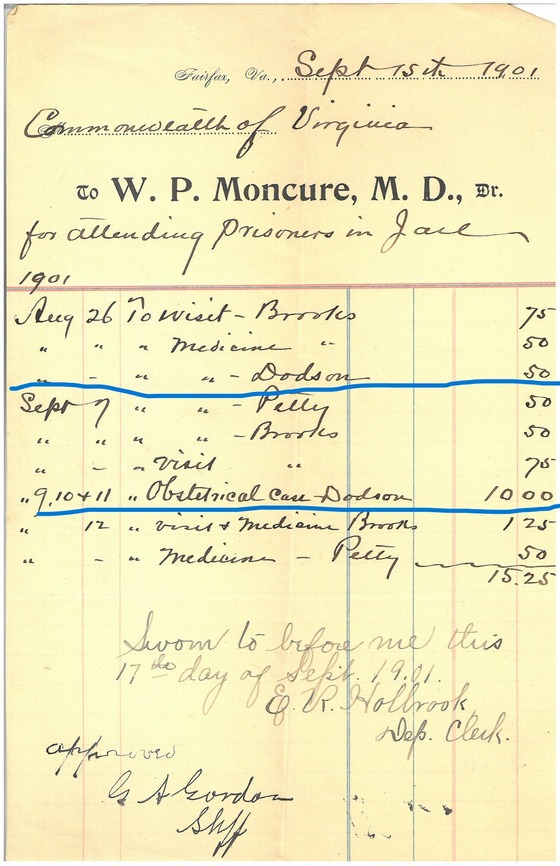 Fairfax, Va., Sept 15th 1901
Commonwealth of Virginia
To W. P. Moncure, M. D., Dr.
for attending Prisoners in Jail
1901
Aug 26 To visit - Brooks 75
" " " Medicine " 50
" - " " - Dodson 50
Sept 7 " " - Petty 50
" " " " - Brooks 50
" - " visit " 75
" 9, 10 & 11 " Obstetrical case - Dodson 10 00
" 12 " visit & Medicine Brooks 1 25
" - " Medicine - Petty 50
15.25
Sworn to before me this
17th day of Sept. 1901.
E. R. Holbrook
Dep. Clerk.
approved
G A Gordon
Shff